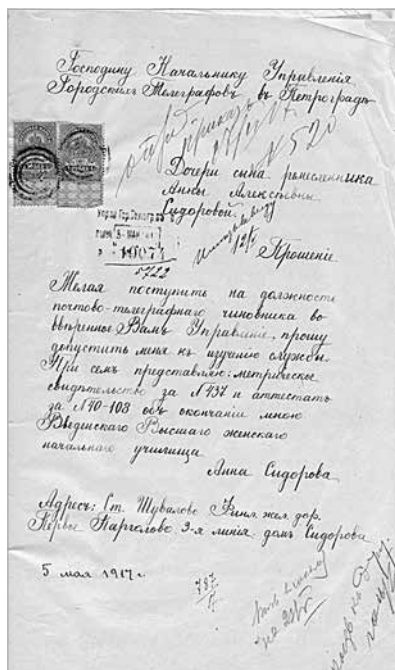 Господину Начальнику Управленія
Городскихъ Телеграфовъ въ Петроградѣ
№ 520
Дочери сына ремесленника
Анны Алексѣевны
Сидоровой.
5722
Прошеніе
Желая поступить на должность
почтово-телеграфнаго чиновника во
ввѣренное Вамъ Управленіе, прошу
допустить меня къ изученію службы.
При семъ представляю: метрическое
свидѣтельство за №437 и аттестатъ
за №40-108 объ окончаніи мною
Введенскаго Высшаго женскаго
начальнаго училища
Анна Сидорова
Адресъ: Ст. Шувалово Финл. жел. дор.
Первое Парголово 3-я линія домъ Сидорова
5 мая 1917 г.